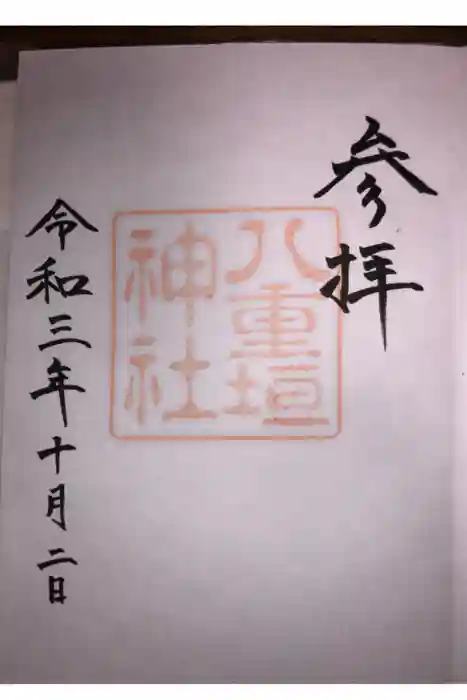 参拝
八重垣
神社
令和三年十月二日